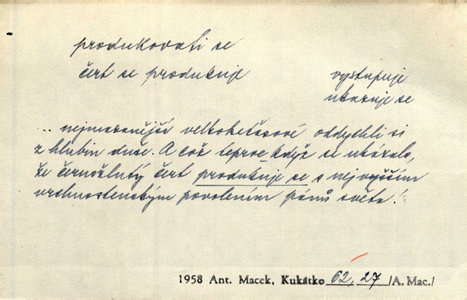 produkovati se
čert se produkuje vystupuje
ukazuje se
... nejmazanější velkoketasové oddychli si
z hlubin duše. A což teprve když se ukázalo,
že černožlutý čert produkuje se s nejvyšším
vrchnostenským povolením pánů světa!
1958 Ant. Macek, Kukátko 62, 27 /A. Mac./